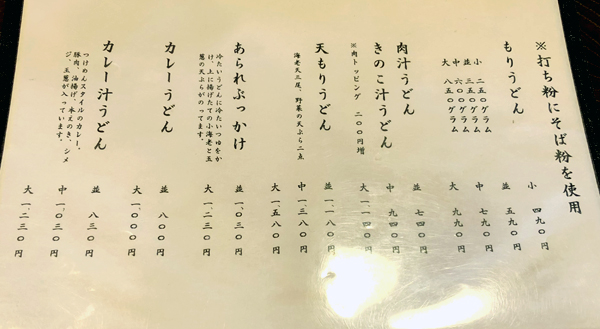 ※打ち粉にそば粉を使用
もりうどん
小 二五〇グラム
並 三五〇グラム
中 六〇〇グラム
大 八五〇グラム
小 四九〇円
並 五九〇円
中 七九〇円
大 九九〇円
肉汁うどん
きのこ汁うどん
※肉トッピング 二〇〇円増
並 七四〇円
中 九四〇円
大 一、一四〇円
天もりうどん
海老天三尾、野菜の天ぷら二点
並 一、一八〇円
中 一、三八〇円
大 一、五八〇円
あられぶっかけ
冷たいうどんに冷たいつゆをか
け、上に揚げたての小海老と玉
葱の天ぷらがのってます。
並 一、〇三〇円
大 一、二三〇円
カレーうどん
並 八〇〇円
大 一、〇〇〇円
カレー汁うどん
つけめんスタイルのカレー。
豚肉、油揚げ、水えのき、シメ
ジ、玉葱が入っています。
並 八三〇円
中 一、〇三〇円
大 一、二三〇円